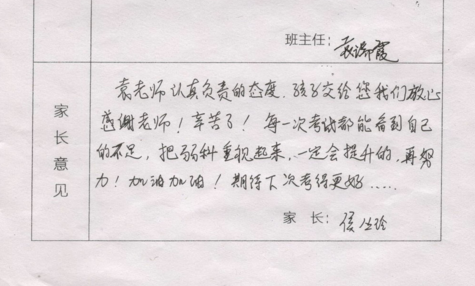 班主任：袁瑞霞
袁老师认真负责的态度，孩子交给您我们放心
感谢老师！辛苦了！每一次考试都能看到自己
的不足，把弱科重视起来，一定会提升的，再努
力！加油加油！期待下次考得更好……
家长意见
家 长：侯